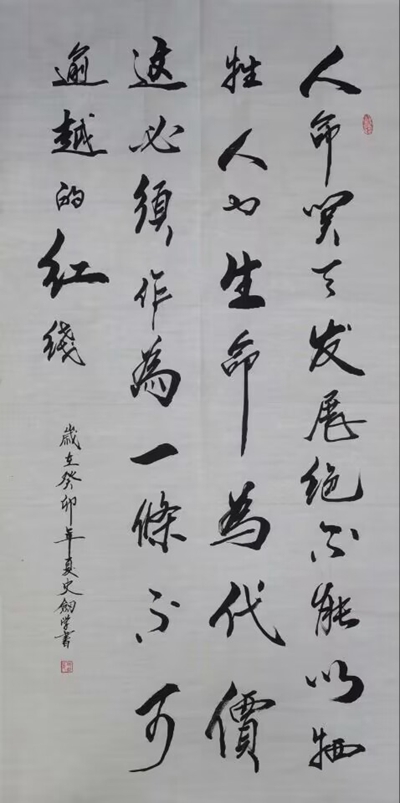 人命関天发展绝不能以牺
牲人的生命為代價
這必須作為一條不可
逾越的红綫
歲在癸卯年夏史劍學書